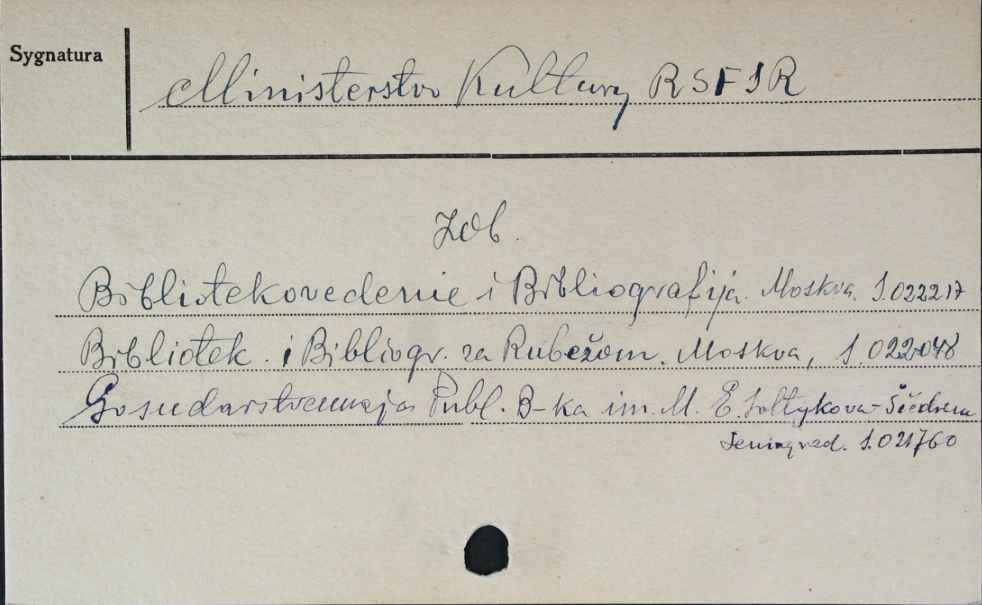 Sygnatura
Ministerstvo Kultury RSFSR
Zob.
Bibliotekovedenie i Bibliografija. Moskva. S.022217
Bibliotek. i Bibliogr. za Rubežom. Moskva, S.022048
Gosudarstvennaja Publ. B-ka im. M. E. Sołtykova-Ščedrina
Leningrad. S.021760